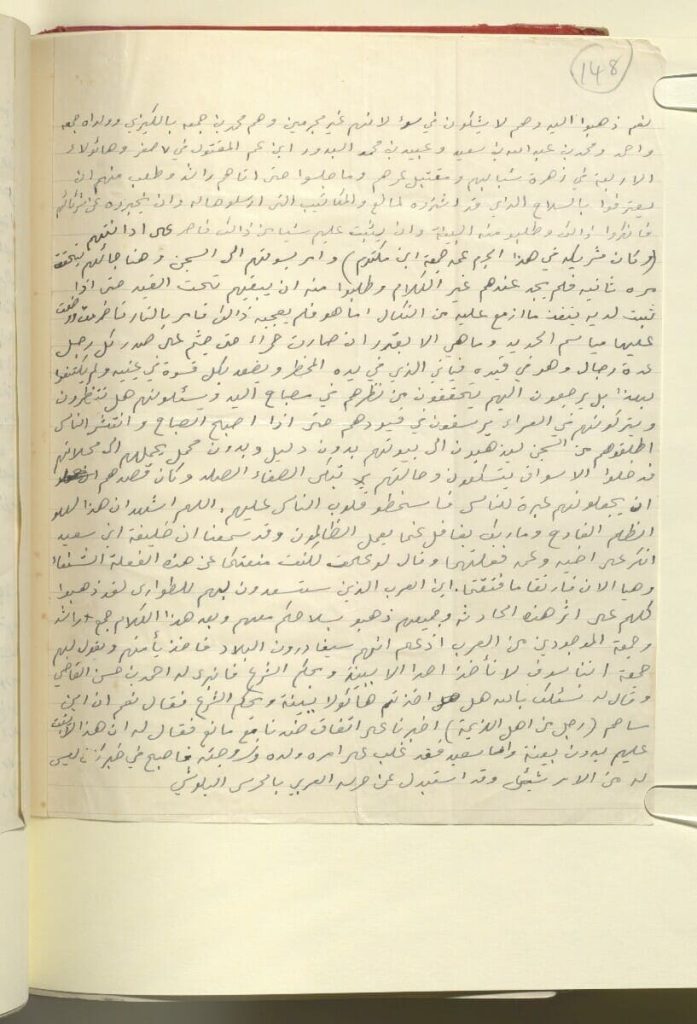 148
نعم ذهبوا اليه وهم لا يشكون في سؤلانهم غير مجرمين وهم محمد بن جمعه بالكيزي وولداه جمعه
واحمد ومحمد بن عبدالله بن سعيد وعبيد بن محمد البدور ابن عم المقتول في ٧ صفر وهائولاء
الاربعة في زهرة شبابهم ومقتبل عمرهم وما جلسوا حتى اتاهم راشد وطلب منهم ان
يعترفوا بالسلاح الذي قد اشتروه لمانع والمكاتيب التي ارسلوها له وان يخبروه عن شركائهم
فانكروا ذالك وطلبو منه البينة وان يثبت عليهم شيئا من ذالك فاصر على ادانتهم
(وكان شريكه في هذا الجرم عمه جمعة ابن مكتوم) وامر بسوقهم الى السجن وهنا جائهم يتحقق
مره ثانيه فلم يجد عندهم غير الكلام وطلبوا منه ان يبقيهم تحت القيد حتى اذا
ثبت لديه ينفذ ما ازمع عليه من النكال اما هو فلم يعجبه ذالك فامر بالنار فاضرمت ووضعت
عليها مياسم الحديد وما هي الا بقدر ان صارت حمراء حتى جثم على صدر كل رجل
عدة رجال وهو في قيده فيأتي الذي في يده المخطر ويضعه بكل قسوة في عينيه ولم يكتفوا
بهذا بل يرجعون اليهم يتحققون من نظرهم في مصباح اليد ويسئلونهم هل تنظرون
ويتركونهم في العراء يرسفون في قيودهم حتى اذا اصبح الصباح وانتشر الناس
اطلقوهم من السجن ليذهبون الى بيوتهم بدون دليل وبدون محمل يحملهم الى محلاتهم
فدخلوا الاسواق يتسكعون وحالتهم تبكي الصفاء الصلد وكان قصدهم
ان يجعلونهم عبرة للناس فاسخطو قلوب الناس عليهم. اللهم اشهد ان هذا لهو
الظلم الفادح وما ربك بغافل عما يعمل الظالمون وقد سمعنا ان خليفة ابن سعيد
انكر على اخيه وعمه فعلتهما وقال لو علمت لكنت منعتكما عن هذه الفعلة الشنعاء
وهيا الان فارتقا ما فتقتما. اين العرب الذين ستسعدون بهم للطوارى لقد ذهبوا
كلهم على اثر هذه الحادثه وجميعهم ذهبو بسلاحكم معهم وبعد هذا الكلام جمع راشد
وجمعة الموجودين من العرب اذ علم انهم سيغادرون البلاد فاخذ يأمنهم ويقول لهم
جمعة اننا سوف لا نأخذ احدا الا ببينة وبحكم الشرع فانبرى له احمد بن حسن القاضي
وقال له نسئلك بالله هل اخذتم هائولا ببينة وبحكم الشرع فقال نعم ان ابن
سالم (رجل من اهل الذيد) اخبرنا على اتفاق ضدنا مع مانع فقال له ان هذا الاثبت
عليهم بدون بينة واما سعيد فقد غلب على امره ولده وزوجته فاصبح في خبر كان ليس
له من الامر شيئى وقد استبدل عن حرسه العربي بالحرس البلوشي